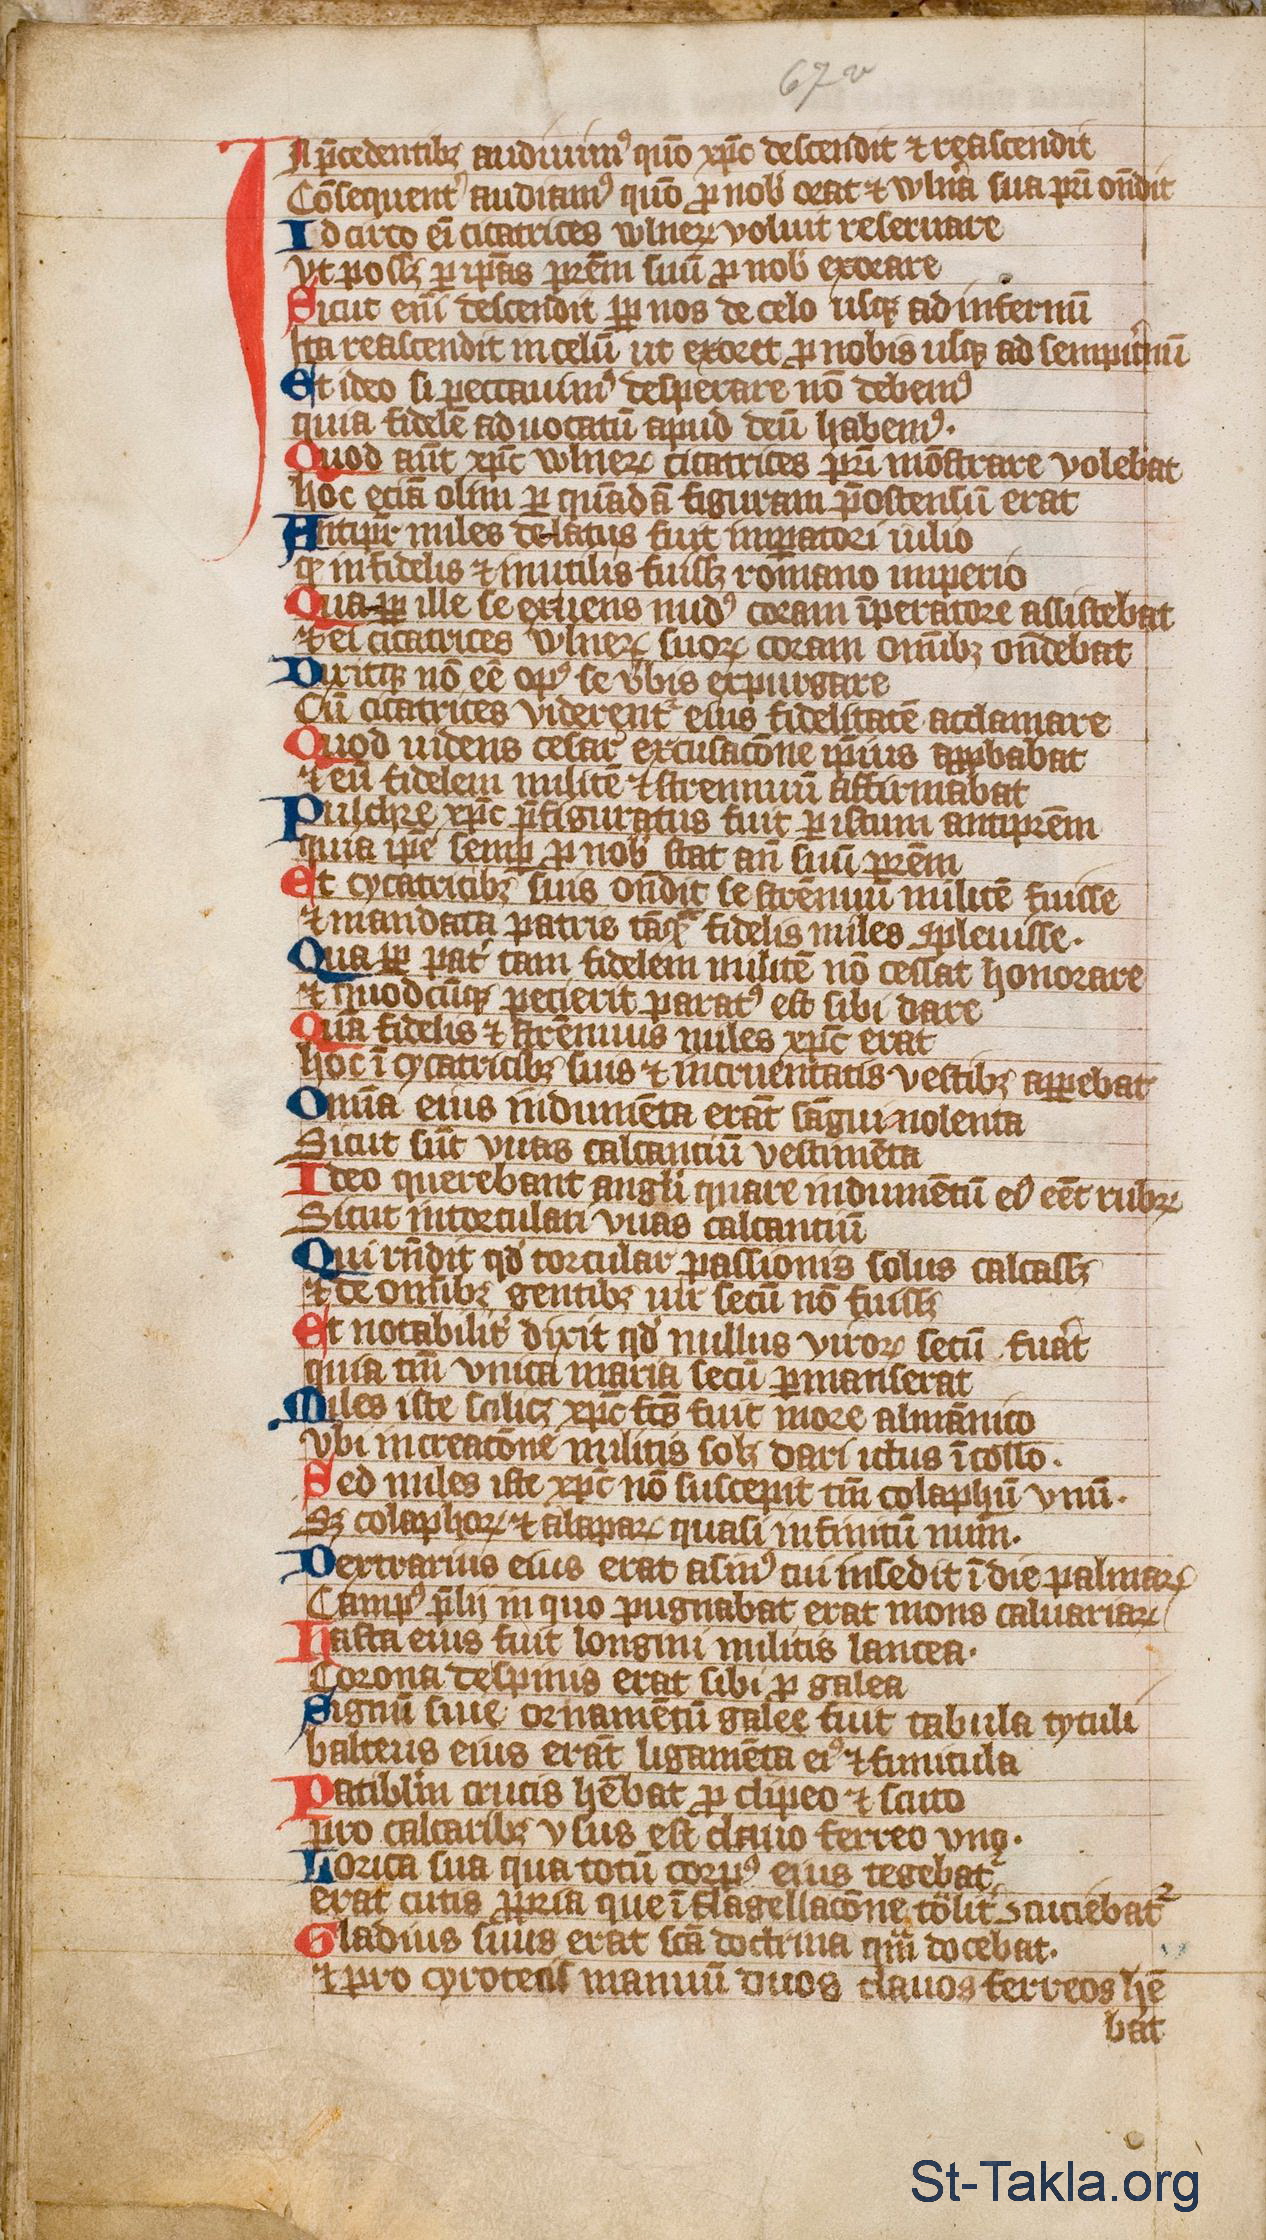 67v
In p̄cedentibꝫ audiuimꝰ quō xp̄c descendit ⁊ reascendit
Cōsequent᾿ audiamꝰ quō ꝓ nob᾿ orat ⁊ wlnͣa sua pr̄i on̄dit
Idcirco ei᾿ cicatrices wlneꝝ voluit reseruare
vt possꝫ ꝑ ip̄as pr̄em suū ꝓ nob᾿ exorare
Sicut eni᾿ descendit ꝓpt᾿ nos de celo usqꝫ ad infernū
Ita reascendit in celū ut exoret ꝓ nobis usqꝫ ad sempit᾿nū
Et ideo si peccauimꝰ desperare nō debemꝰ
quia fidelē aduocatū apud deū habemꝰ.
Quod aūt xp̄c wlneꝝ cicatrices pr̄i mōstrare volebat
hoc eciā olim ꝑ quādā figuram p̄ostensū erat
Antip̄r miles delatus fuit imꝑatori iulio
ꝙ infidelis ⁊ inutilis fuissꝫ romano imperio
Qua ꝓpt᾿ ille se exuens nudꝰ coram īperatore assistebat
⁊ ei cicatrices wlneꝝ suoꝝ coram omībꝫ on̄debat
Dixitqꝫ nō eē opꝰ se v᾿bis expurgare
Cū cicatrices viderent᾿ eius fidelitatē acclamare
Quod uidens cesar excusacōne ip̄ius apꝓbabat
⁊ eū fidelem militē ⁊ strennuū affirmabat
Pulchre xp̄c p̄figuratus fuit ꝑ istum antipr̄em
quia ip̄e semꝑ ꝓ nob᾿ stat an̄ suū pr̄em
Et cycatricibꝫ suis on̄dit se strēnuū militē fuisse
⁊ mandata patris tāꝙ fidelis miles ꝯpleuisse.
Qua ꝓpt᾿ pat᾿ tam fidelem militē nō cessat honorare
⁊ quodcūqꝫ pecierit paratꝰ est sibi dare
Quā fidelis ⁊ strēnuus miles xp̄c erat
hoc ī cycatricibꝫ suis ⁊ incruentatis vestibꝫ apꝑebat
Omīa eius indumēta erāt sāguinolenta
Sicut sūt vuas calcanciū vestimēta
Ideo querebant angl̄i quare indumētū eiꝰ eēt rubꝝ
Sicut in torculari vuas calcanciū
Qui rn̄dit qd᾿ torcular passionis solus calcassꝫ
⁊ de omībꝫ gentibꝫ uir secū nō fuissꝫ
Et notabilit᾿ dixit qd᾿ nullus viroꝝ secū fuāt
quia tm̄ vnica maria secū ꝑmanserat
Miles iste scilicꝫ xp̄c fc̄s fuit more almānico
vbi in creacōne militis solꝫ dari ictus ī collo.
Sed miles iste xp̄c nō suscepit tm̄ colaphū vnū.
Sꝫ colaphoꝝ ⁊ alapaꝝ quasi infinitū num̄.
Dextrarius eius erat asinꝰ cui insedit ī die palmaꝝ
Campꝰ p̄lij in quo pugnabat erat mons caluariaꝝ
Hasta eius fuit longini militis lancea.
Corona de spinis erat sibi ꝓ galea
Signū siue ornamētū galee fuit tabula tytuli
balteus eius erāt ligamēta eiꝰ ⁊ funicula
Patibl̄m crucis hēbat ꝓ clipeo ⁊ scuto
pro calcaribꝫ vsus est clauo ferreo vnꝙ.
Lorica sua qua totū corpꝰ eius tegebat᾿
erat cutis ꝓpria que ī flagellacōne ꝯcuciebat᾿
Gladius suus erat sc̄a doctrina qm̄ docebat.
⁊ pro cyrotecis manuū duos clauos ferreos hē
bat
St-Takla.org